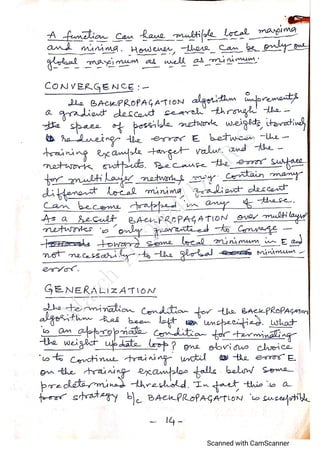 A function can have multiple local maxima
and minima. However, there can be only one
global maximum as well as minimum.
CONVERGENCE :-
The BACKPROPAGATION algorithm implements
a gradient descent search through the
the space of possible network weights, iteratively
reducing the error E between the
training example target value and the
network outputs. Because the error surface
for multilayer networks may contain many
different local minima, gradient descent
can become trapped in any of these.
As a result BACKPROPAGATION over multilayer
networks is only guaranteed to converge
toward some local minimum in E and
not necessarily to the global minimum
error.
GENERALIZATION
The termination condition for the BACKPROPAGATION
algorithm has been left unspecified. What
is an appropriate condition for terminating
the weight update loop? One obvious choice
is to continue training until the error E
on the training examples falls below some
predetermined threshold. In fact, this is a
poor strategy b/c BACKPROPAGATION is susceptible
- 14 -
Scanned with CamScanner